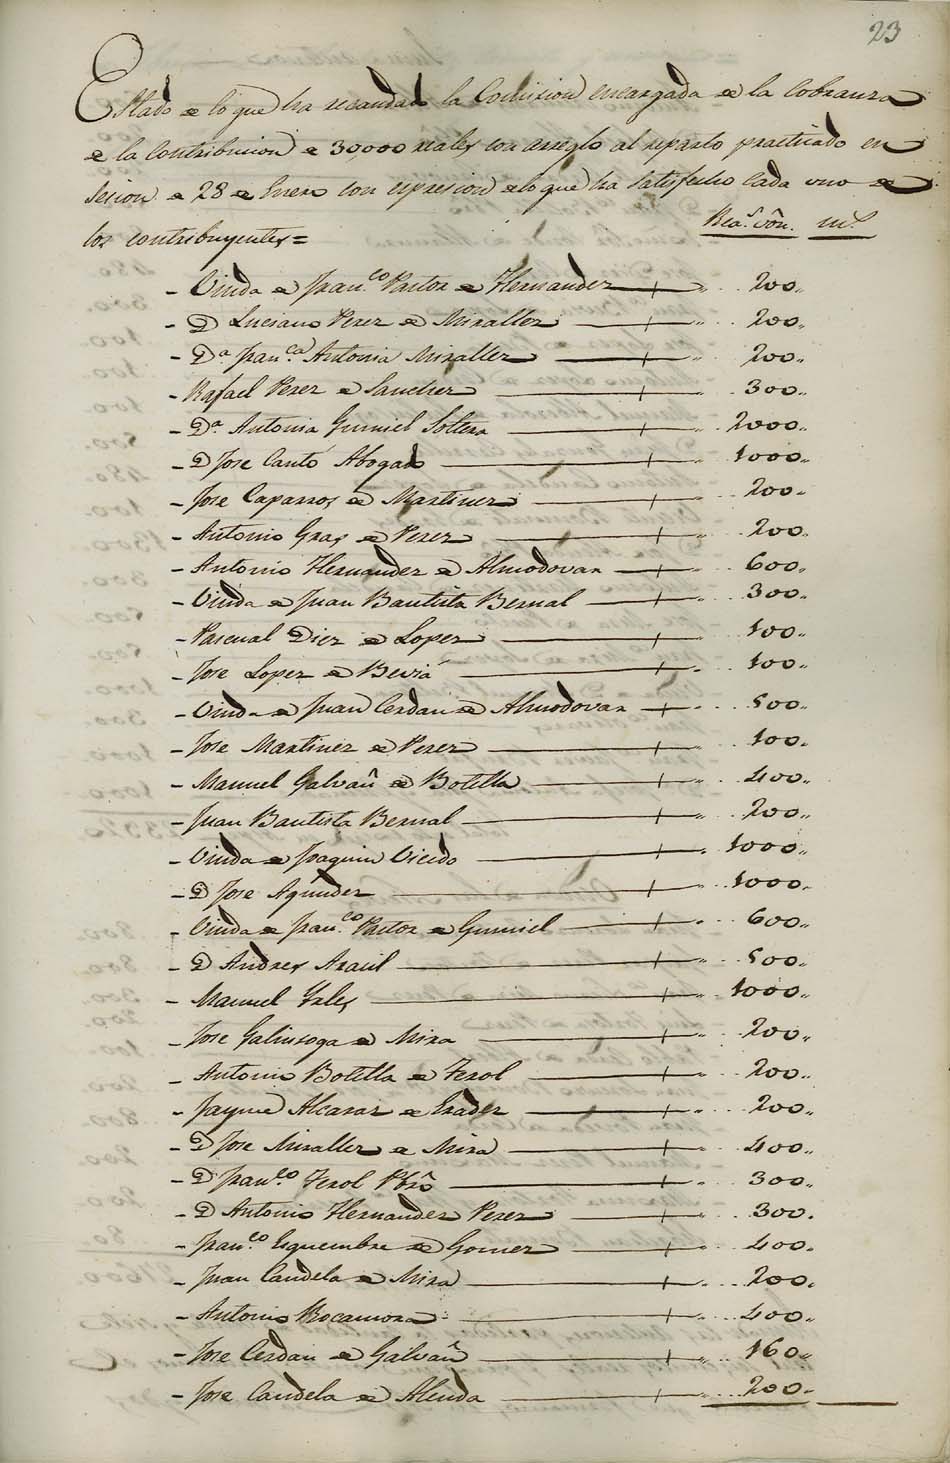 23
Estado de lo que ha recaudado la Comision encargada de la Cobranza
de la Contribucion de 30,000 reales con arreglo al reparto practicado en
Sesion de 28 de Enero con espresion de lo que ha satisfecho cada uno de
los contribuyentes =
Rea.s vón. m.s
- Viuda de Fran.co Pastor de Hernandez 200,,
- D Luciano Perez de Miralles 200,,
- D.a Fran.ca Antonia Miralles 200,,
- Rafael Perez de Sanchez 300,,
- D.a Antonia Gumiel Soltera 2000,,
- D Jose Cantó Abogado 1000,,
- Jose Caparros de Martinez 200,,
- Antonio Gras de Perez 200,,
- Antonio Hernandez de Almodovar 600,,
- Viuda de Juan Bautista Bernal 300,,
- Pascual Diez de Lopez 100,,
- Jose Lopez de Beviá 100,,
- Viuda de Juan Cerdan de Almodovar 500,,
- Jose Martinez de Perez 100,,
- Manuel Galvañ de Botella 400,,
- Juan Bautista Bernal 200,,
- Viuda de Joaquin Vicedo 1000,,
- D Jose 1000,,
- Viuda de Fran.co Pastor de Gumiel 600,,
- D Andres Aracil 500,,
- Manuel 1000,,
- Jose Galinsoga de Mira 200,,
- Antonio Botella de Ferol 200,,
- Jayme Alcaraz de 200,,
- D Jose Miralles de Mira 400,,
- D Fran.co Ferol Pbro 300,,
- D Antonio Hernandez Perez 300.
- Fran.co Esquembre de Gomez 400,,
- Juan Candela de Mira 200,,
- Antonio Rocamora 400,,
- Jose Cerdan de Galvañ 160,,
- Jose Candela de Alenda 200,,